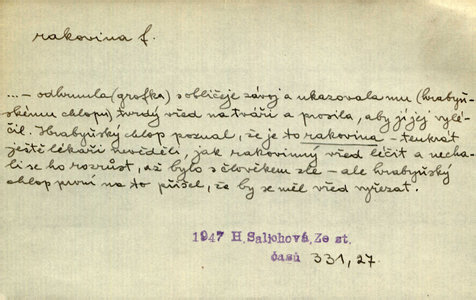 rakovina f.
...- odhrnula (grofka) s obličeje závoj a ukazovala mu (hrabyň-
skému chlopu) tvrdý vřed na tváři a prosila, aby jí jej vylé-
čil. Hrabyňský chlop poznal, že je to rakovina - tenkrát
ještě lékaři nevěděli, jak rakovinný vřed léčit a necha-
li se ho rozrůst, až bylo s člověkem zle - ale hrabyňský
chlop první na to přišel, že by se měl vřed vyřezat.
1947 H. Salichová, Ze st.
časů 331, 27.